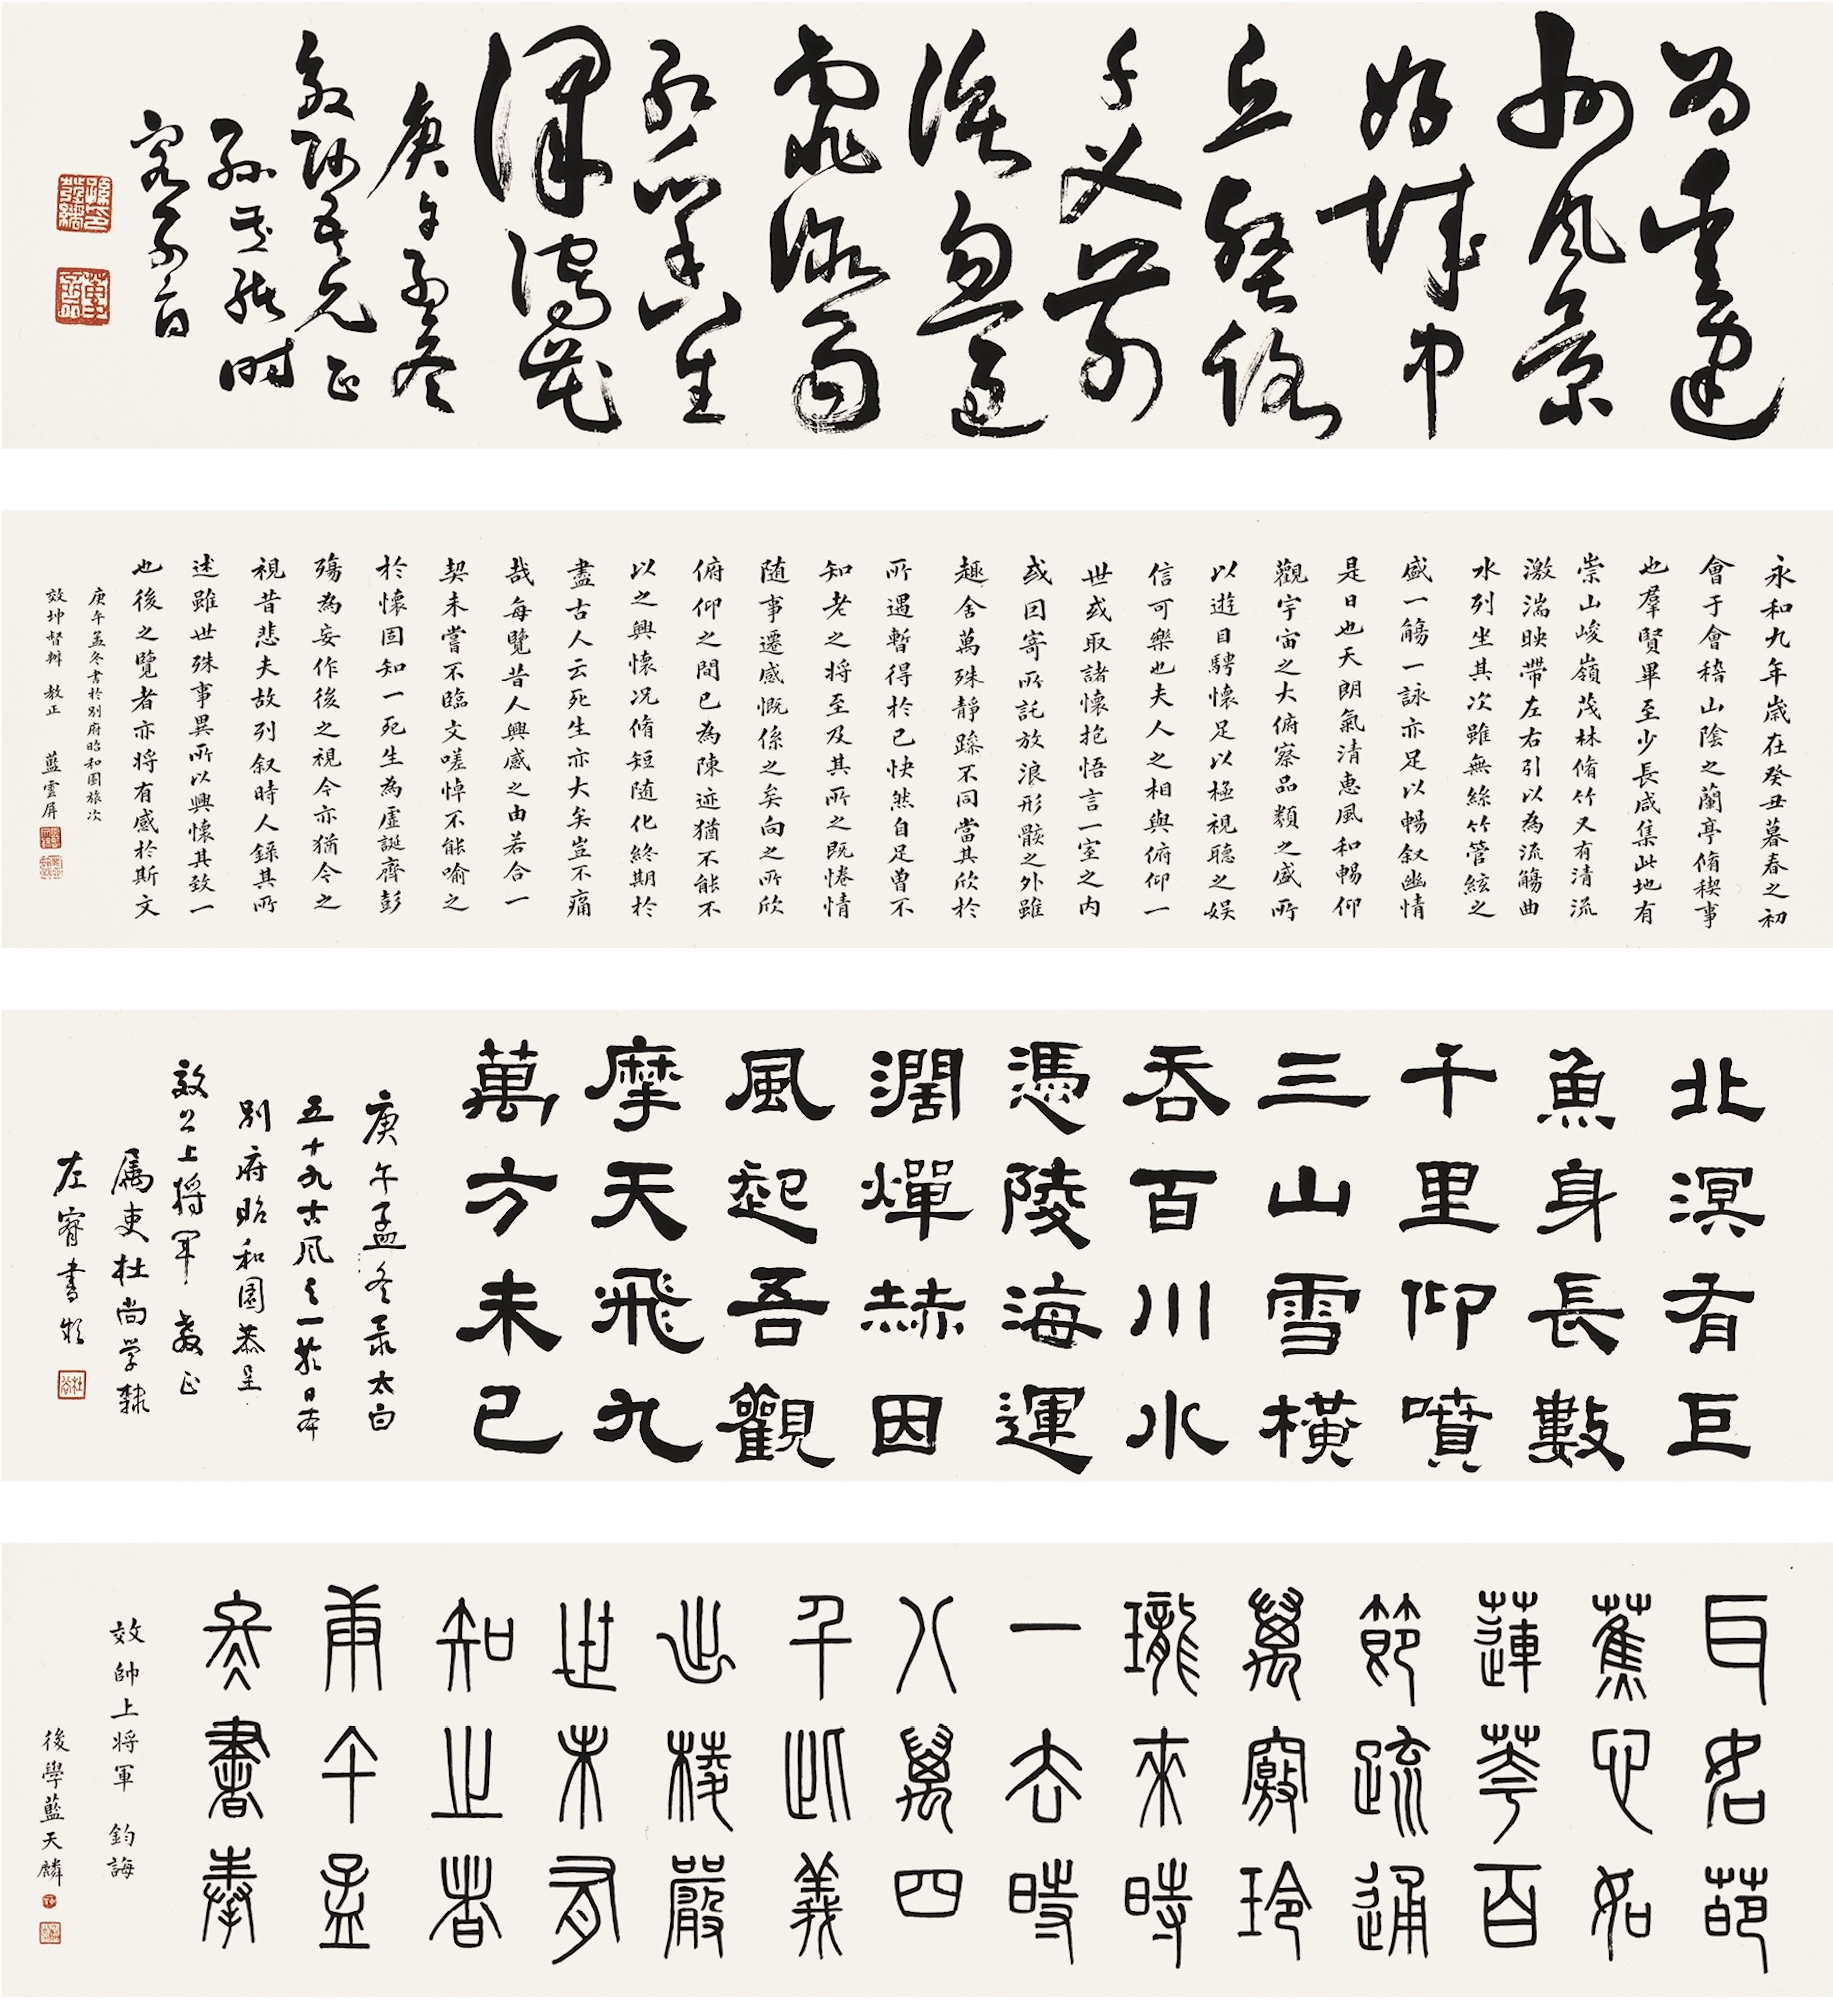 州風景
好城中
丘壑
霏微雨
庚午孟冬
永和九年歲在癸丑暮春之初
會于會稽山陰之蘭亭脩稧事
也羣賢畢至少長咸集此地有
崇山峻嶺茂林脩竹又有清流
激湍映帶左右引以為流觴曲
水列坐其次雖無絲竹管絃之
盛一觴一詠亦足以暢叙幽情
是日也天朗氣清惠風和暢仰
觀宇宙之大俯察品類之盛所
以遊目騁懷足以極視聽之娱
信可樂也夫人之相與俯仰一
世或取諸懷抱悟言一室之内
或因寄所託放浪形骸之外雖
趣舍萬殊靜躁不同當其欣於
所遇暫得於己快然自足曽不
知老之将至及其所之既惓情
随事遷感慨係之矣向之所欣
俯仰之間已為陳迹猶不能不
以之興懷况脩短随化終期於
盡古人云死生亦大矣豈不痛
哉每覽昔人興感之由若合一
契未嘗不臨文嗟悼不能喻之
於懷固知一死生為虛誕齊彭
殤為妄作後之視今亦猶今之
視昔悲夫故列叙時人錄其所
述雖世殊事異所以興懷其致一
也後之覽者亦将有感於斯文
庚午孟冬書於别府昭和園旅次
效坤督辦 教正 藍雲屏
北溟有巨
魚身長數
千里仰噴
三山雪横
吞百川水
憑陵海運
濶燀赫因
風起吾觀
摩天飛九
萬方未已
庚午孟冬录太白
五十九古风之一於日本
别府昭和園恭呈
效公上将军 教正
属吏杜尚学隸
左
身如葩
蕉心如
蓮華百
節疏通
萬竅玲
瓏來時
一去時
八萬四
千此義
出楞嚴
世未有
知之者
庚午孟
冬書奉
效帥上将軍 鈞誨
後學藍天麟